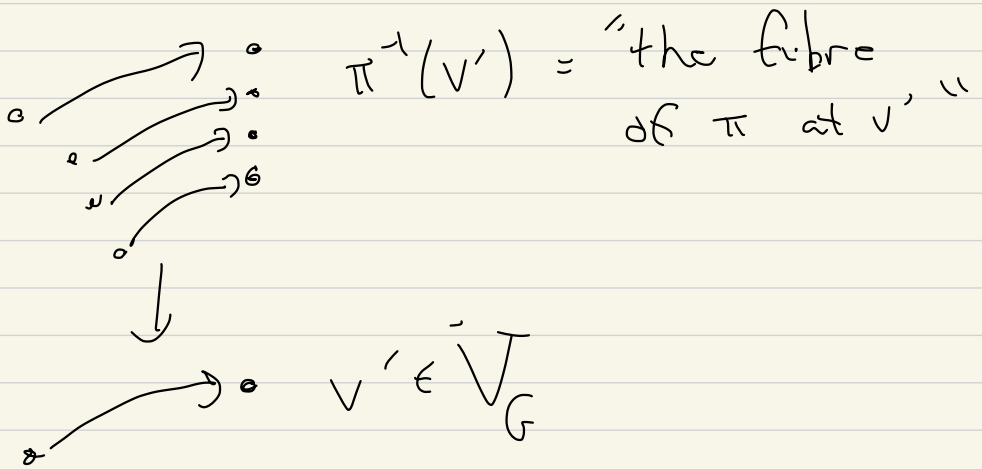 π⁻¹(v') = "the fibre
of π at v'"
v' ∈ V_G